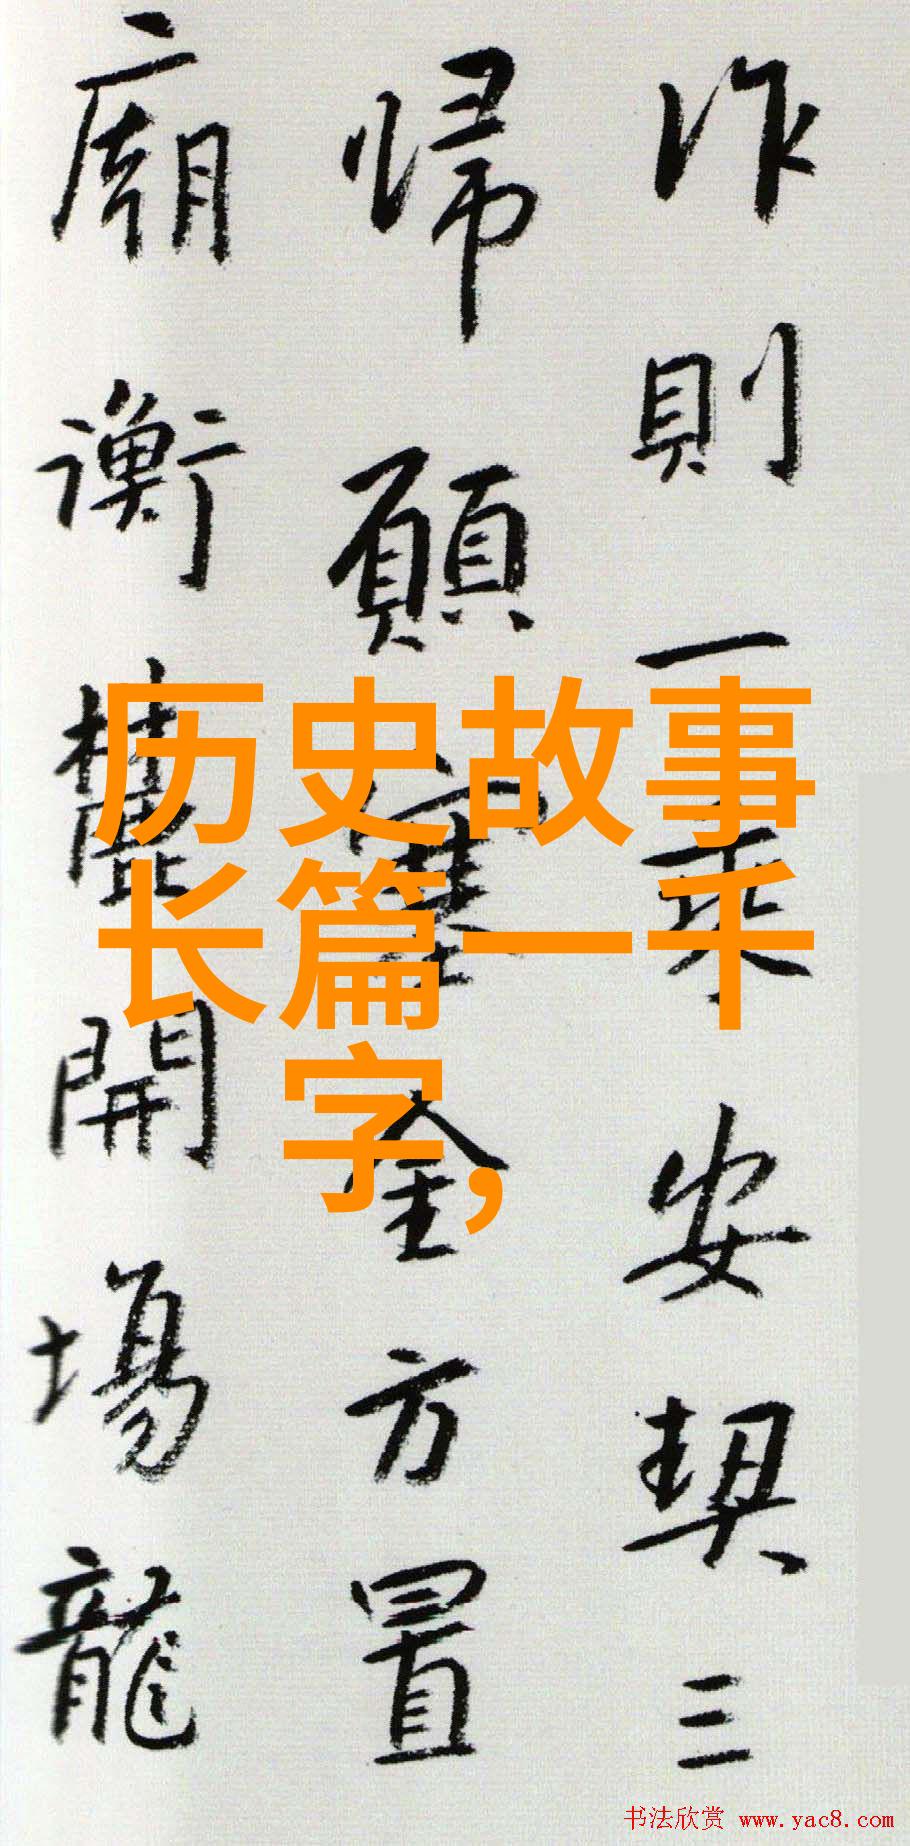 作則一乘安契三
歸願全方置
廟衡麓開場龍
历史故事
长篇一千
字，
书法欣赏 www.yac8.com